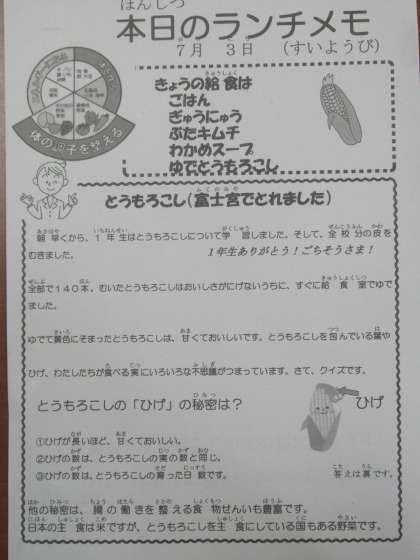 本日のランチメモ
7月 3日 (すいようび)
きょうの給食は
ごはん
ぎゅうにゅう
ぶたキムチ
わかめスープ
ゆでとうもろこし
体の調子を整える
とうもろこし(富士宮でとれました)
朝早くから、1年生はとうもろこしについて学習しました。そして、全校分の皮を
むきました。 1年生ありがとう！ごちそうさま！
全部で140本、むいたとうもろこしはおいしさがにげないうちに、すぐに給食室でゆで
ました。
ゆでて黄色にそまったとうもろこしは、甘くておいしいです。とうもろこしを包んでいる葉や
ひげ、わたしたちが食べる実にいろいろな不思議がつまっています。さて、クイズです。
とうもろこしの「ひげ」の秘密は？
ひげ
①ひげが長いほど、甘くておいしい。
②ひげの数は、とうもろこしの実の数と同じ。
③ひげの数は、とうもろこしの育った日数です。
答えは裏です。
他の秘密は、腸の働きを整える食物せんいも豊富です。
日本の主食は米ですが、とうもろこしを主食にしている国もある野菜です。